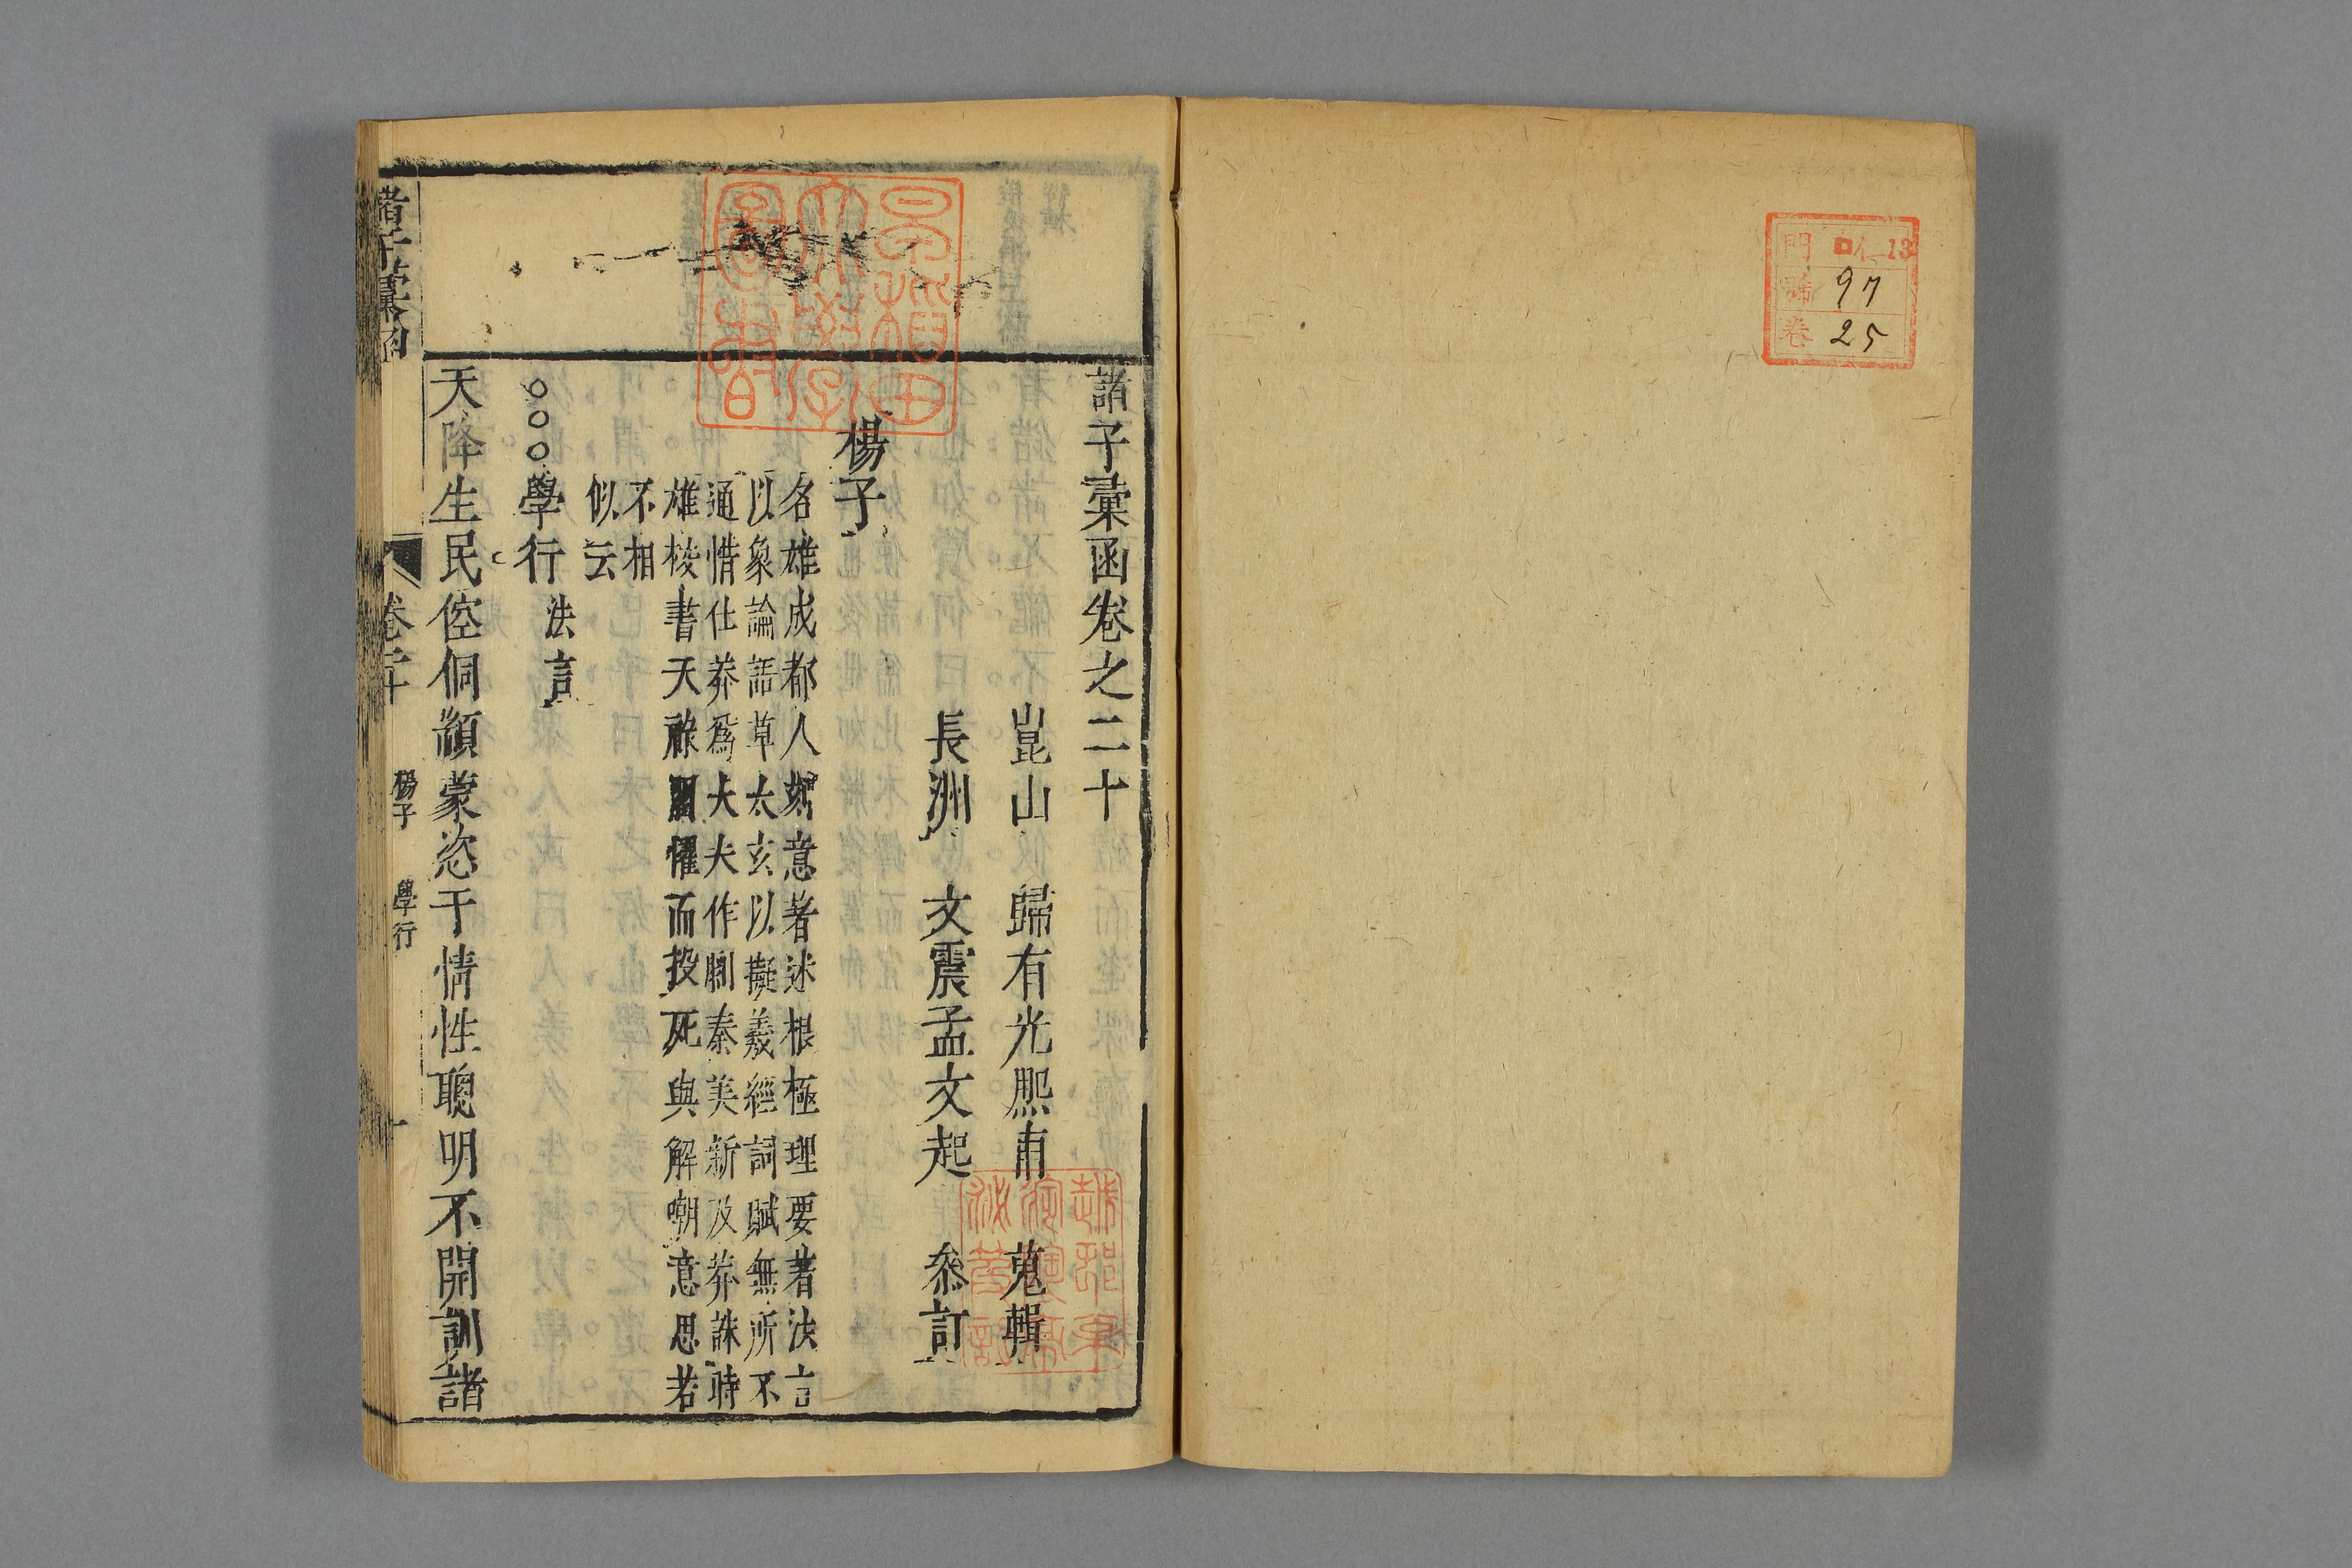 門 仁13
號 97
卷 25
諸子彚函卷之二十
崑山 歸有光熙甫 蒐輯
長洲 文震孟文起 叅訂
楊子
名雄成都人刻意著述根極理要著法言
以象論語草太玄以擬羲經詞賦無所不
通惜仕莽爲大夫作劇秦美新及莽誅時
雄校書天祿閣懼而投死與解嘲意思若
不相
似云
○○○學行 法言
天降生民倥侗顓蒙恣于情性聰明不開訓諸
諸子彚函 卷二十 楊子 學行 一
早稻田大學圖書